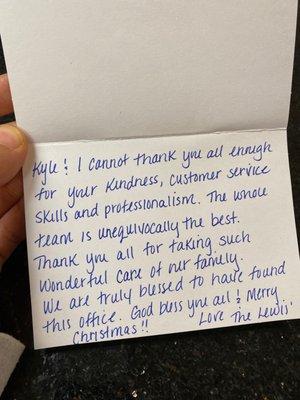 Kyle! I cannot thank you all enough
for your kindness, customer service
skills and professionalism. The whole
team is unequivocally the best.
Thank you all for taking such
wonderful care of our family.
We are truly blessed to have found
this office. God bless you all & Merry
Christmas!! Love The Lewii